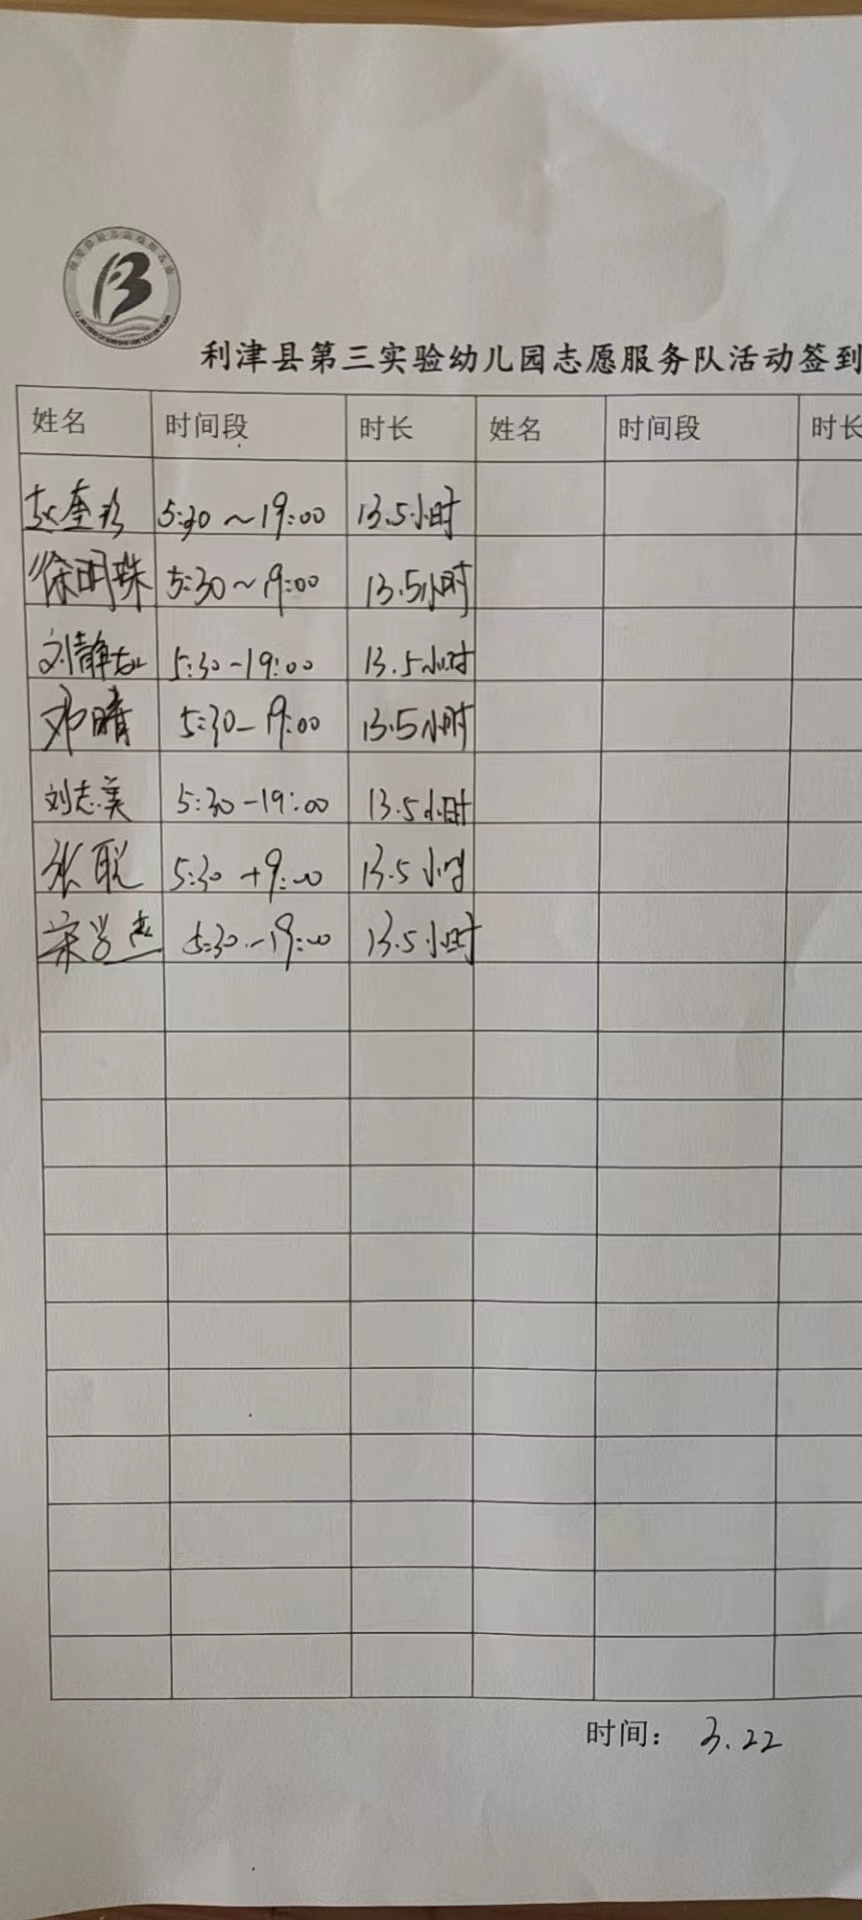 利津县第三实验幼儿园志愿服务队活动签到
姓名 时间段 时长 姓名 时间段 时长
赵奎珍 5:30～19:00 13.5小时
徐明珠 5:30～19:00 13.5小时
刘静 5:30-19:00 13.5小时
邓晴 5:30-19:00 13.5小时
刘志美 5:30-19:00 13.5小时
张聪 5:30-19:00 13.5小时
宋学杰 5:30-19:00 13.5小时
时间： 3.22